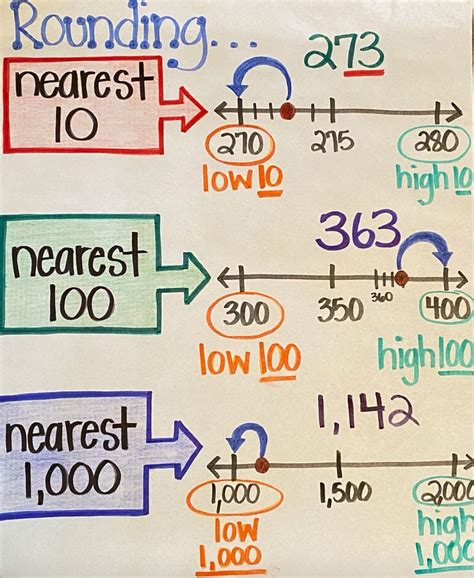 Rounding...
273
nearest
10
270
275
280
low 10
high 10
363
nearest
100
300
350
360
400
low 100
high 100
1,142
nearest
1,000
1,000
1,500
2,000
low
1,000
high
1,000